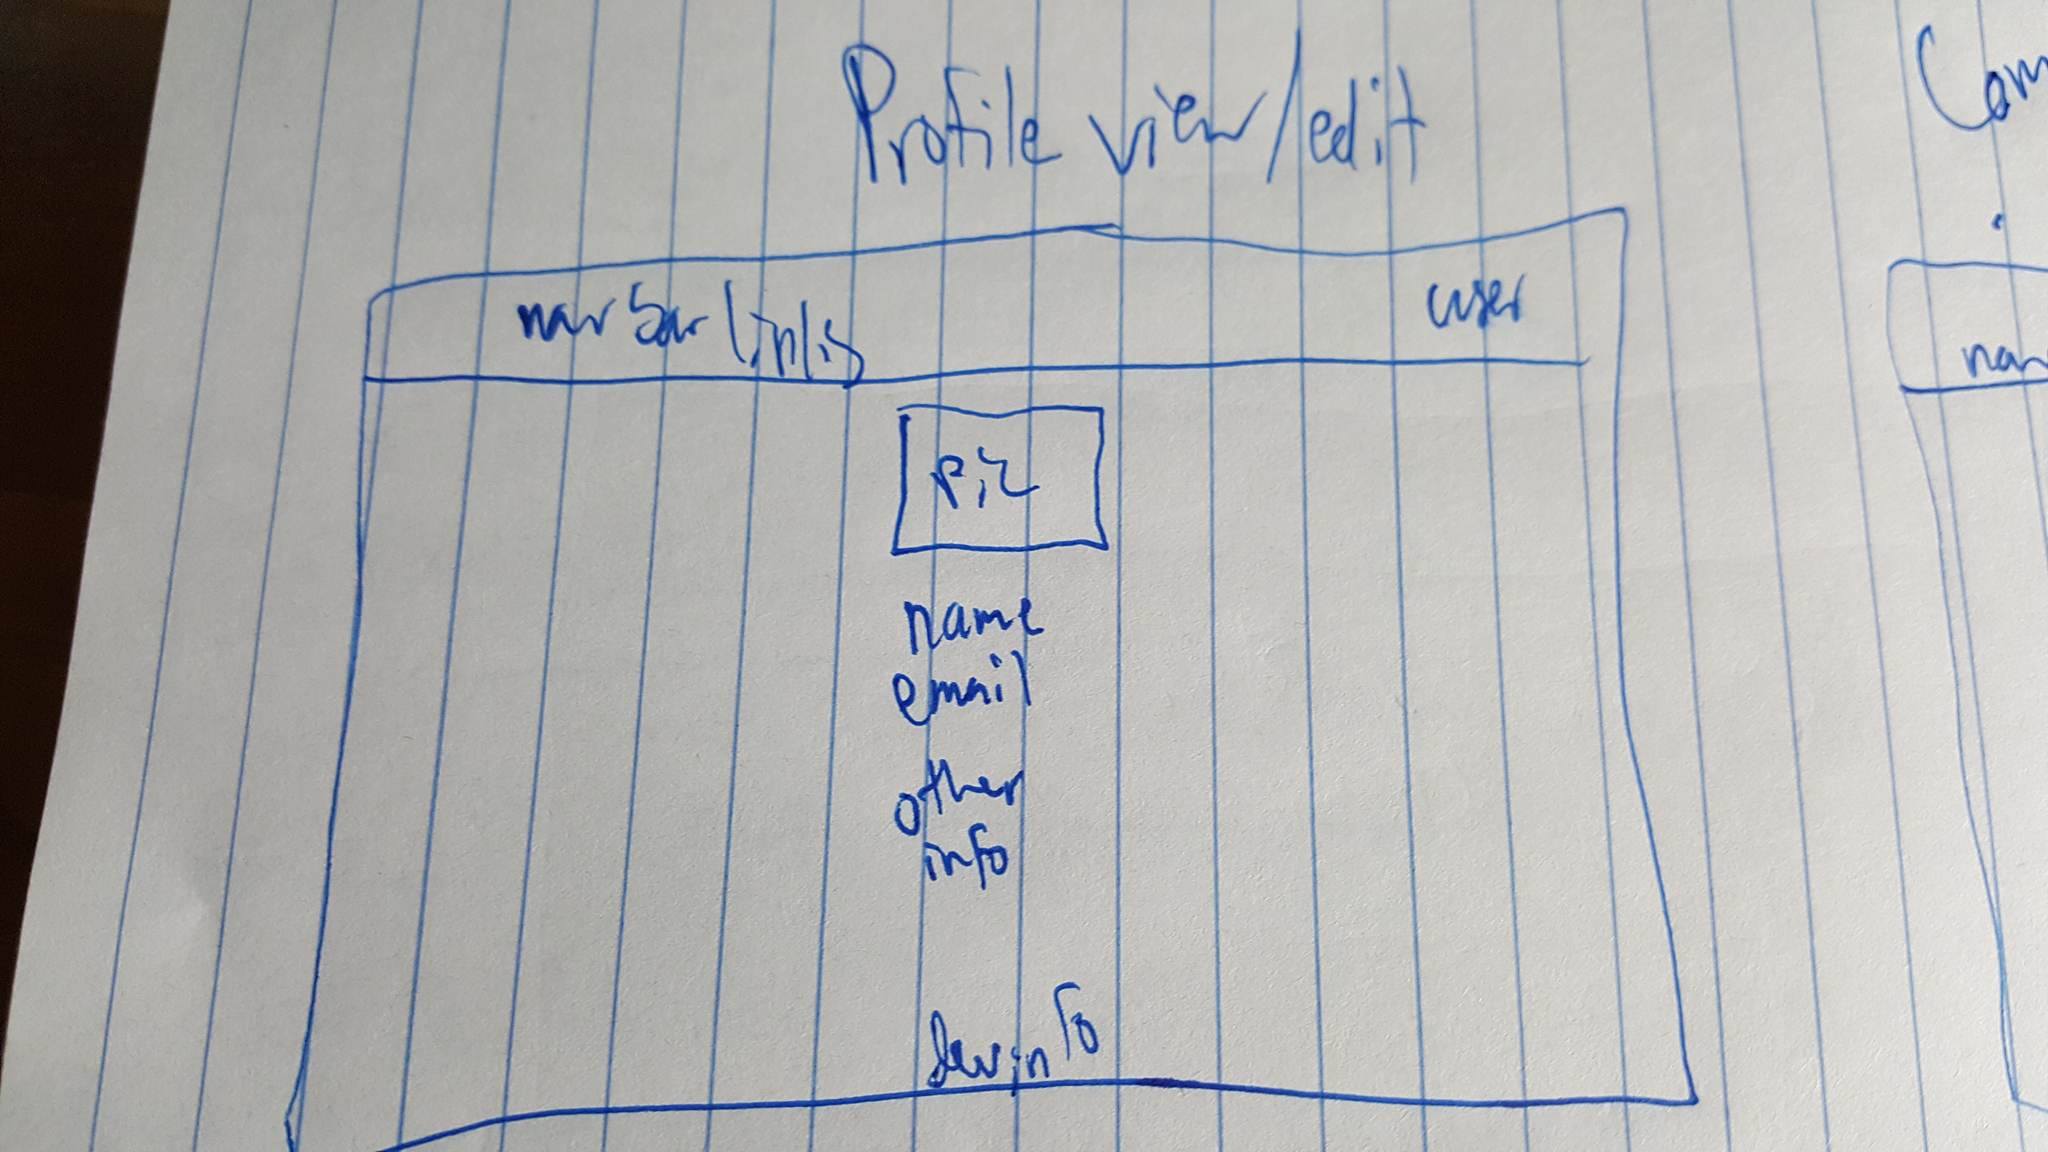 Profile view/edit
navbar links
user
pic
name
email
other
info
dev info